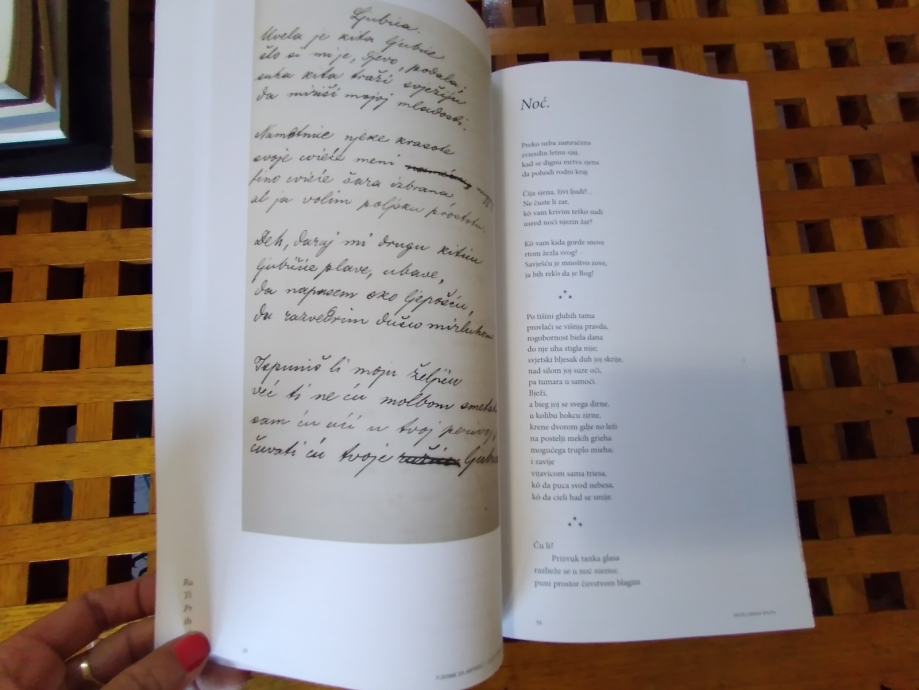 Ljubica.
Uvela je kita ljubice
što si mi je, djevo, podala;
suha kita traži svježiju
da miriši mojoj mladosti.
Nametnice njeke krasote
svoje cvieće meni
fino cvieće čara izbrana
al ja volim poljsku prostotu.
Deh, daraj mi drugu kiticu
ljubičice plave, ubave,
da napasem oko ljepošću,
da razvedrim dušicu mirluhom
Ispuniš li moju željicu
već ti ne ću molbom smetati
sam ću ući u tvoj
čuvati ću tvoje
Noć.
Preko neba zamračena
zvjezdin letnu sjaj,
kad se dignu mrtva sjena
da pohodi rodni kraj.
Čija sjena, živi ljudi?
Ne ćuste li žar,
kô vam krivim teško sudi
usred noći njezin žar?
Kô vam kida gorde snove
rtom žezla svog?
Saviješću je mnoštvo zove,
ja bih rekô da je Bog!
Po tišini gluhih tama
provlači se višnja pravda,
rogobornost biela dana
do nje uha stigla nije;
svjetski bljesak duh joj skrije,
nad silom joj suze oči,
pa tumara u samoći.
Bježi,
a bieg joj se svega dirne,
u kolibu bokcu zirne,
krene dvorom gdje no leži
na postelji mekih grieha
mogućega truplo mieha;
i zavije
vijavicom sama triesa,
kô da puca svod nebesa,
kô da cieli had se smije.
Ču li?
Prizvuk tanka glasa
razlieže se u noć niemu,
puni prostor čuvstvom blagim